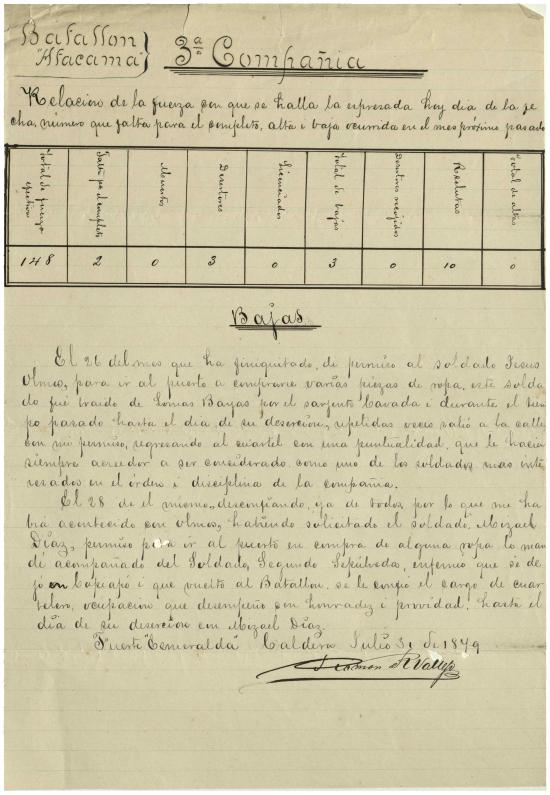 Batallon
"Atacama"
3ª Compañia
Relacion de la fuerza con que se halla la espresada hoy dia de la fe
cha, número que falta para el completo, alta i baja ocurrida en el mes próximo pasado
Total de fuerza efectiva
Falta pa el completo
Muertos
Desertores
Licenciados
Total de bajas
Desertores recojidos
Reclutas
Total de altas
148 2 0 3 0 3 0 10 0
Bajas
El 26 del mes que ha finiquitado, di permiso al soldado Jesus
Olmos, para ir al puerto a comprarse varias piezas de ropa, este solda
do fué traido de Lomas Bayas por el sarjento Cavada i durante el tiem
po pasado hasta el dia de su desercion, repetidas veces salió a la calle
con mi permiso, regresando al cuartel con una puntualidad, que le hacian
siempre acreedor a ser considerado como uno de los soldados mas inte
resados en el órden i disciplina de la compañia.
El 28 de el mismo, desconfiando, ya de todos, por lo que me ha
bia acontecido con Olmos, habiendo solicitado el soldado, Mizael
Diaz, permiso para ir al puerto en compra de alguna ropa lo man
dé acompañado del Soldado, Segundo Sepúlveda, enfermo que se de
jó en Copiapó i que vuelto al Batallon se le confió el cargo de cuar
telero, ocupacion que desempeño con honradez i providad, hasta el
dia de su desercion con Mizael Diaz.
Fuerte "Esmeralda" Caldera Julio 31 de 1879
Ramon R Vallejo